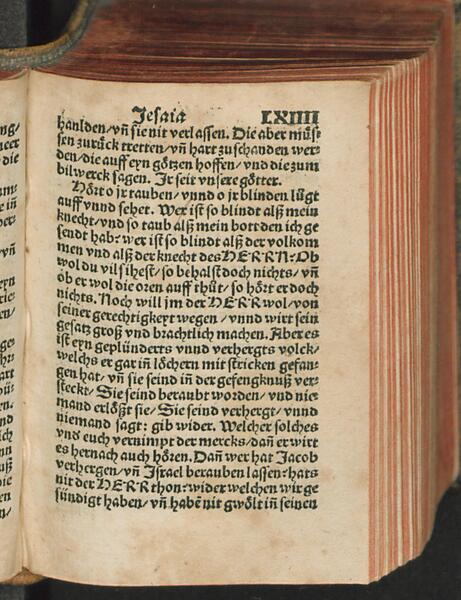 Jesaia LXIIII
hanlden/ vñ sie nit verlassen. Die aber müs-
sen zurück tretten/ vñ hart zuschanden wer-
den/ die auff eyn götzen hoffen/ vnd die zum
bilwerck sagen. Jr seit vnsere götter.
Hört o jr tauben/ vnnd o jr blinden lügt
auff vnnd sehet. Wer ist so blindt alß mein
knecht/ vnd so taub alß mein bott den ich ge
sendt hab: wer ist so blindt alß der volkom
men vnd alß der knecht des HERRN: Ob
wol du vil sihest/ so behalst doch nichts/ vñ
ob er wol die oren auff thüt/ so hört er doch
nichts. Noch will jm der HERR wol/ von
seiner gerechtigkeyt wegen/ vnnd wirt sein
gesatz groß vnd brachtlich machen. Aber es
ist eyn geplünderts vnnd verhergts volck/
welchs er gar iñ löchern mit stricken gefan-
gen hat/ vñ sie seind iñ der gefengknuß ver-
steckt/ Sie seind beraubt worden/ vnd nie-
mand erlößt sie/ Sie seind verhergt/ vnnd
niemand sagt: gib wider. Welcher solches
vnd euch vernimpt der mercks/ dañ er wirt
es hernach auch hören. Dañ wer hat Jacob
verhergen/ vñ Israel berauben lassen: hats
nit der HERR thon: wider welchen wir ge
sündigt haben/ vñ habẽ nit gwölt iñ seinen